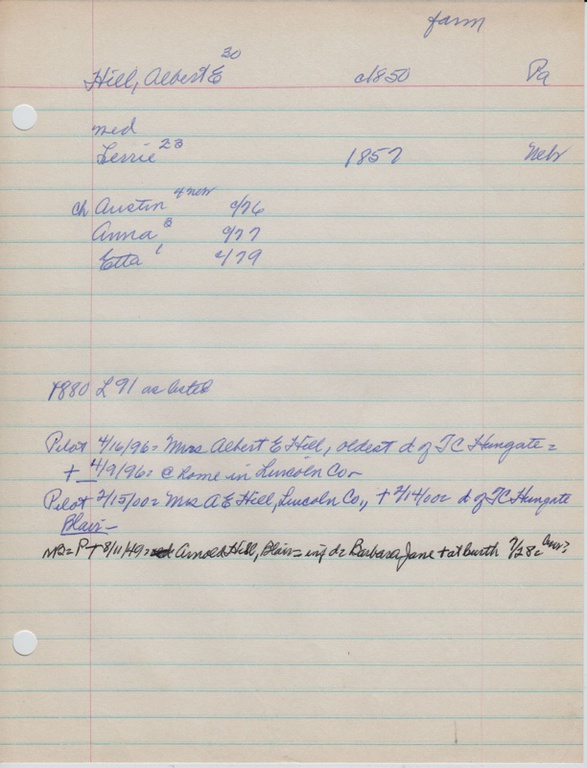 farm
Hill, Albert E 30 c1850 Pa
med
Lerrie 23 1857 Nebr
ch Austin 4 Nebr c/76
Anna 3 c/77
Etta 1 c/79
1880 L 91 as listed
Pilot 4/16/96 = Mrs Albert E Hill, oldest d of TC Hungate =
+ 4/9/96 = @ home in Lincoln Co -
Pilot 2/15/00 = Mrs A E Hill, Lincoln Co., + 2/14/00 = d of TC Hungate
Blair -
= P + 8/11/49 = Arnold Hill, Blair = inf d = Barbara Jane + at birth 7/28